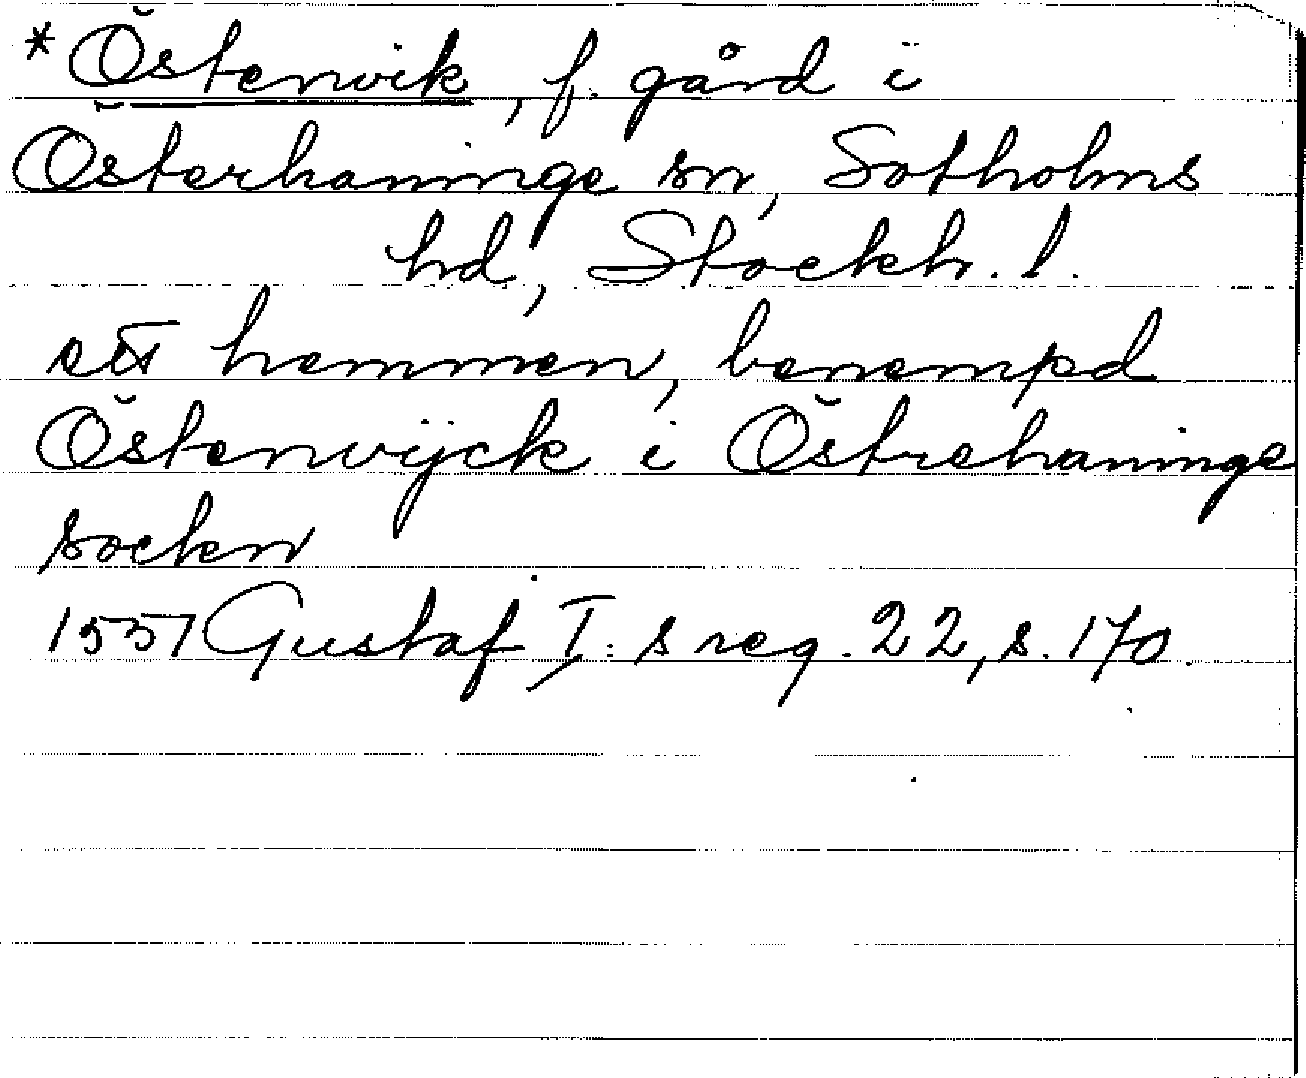 *Östenvik, f. gård i
Österhaninge sn, Sotholms
hd, Stockh. l.
ett hemmen, benempd
Östenvijck i Östrehaninge
socken
1551 Gustaf I:s reg. 22, s. 170.